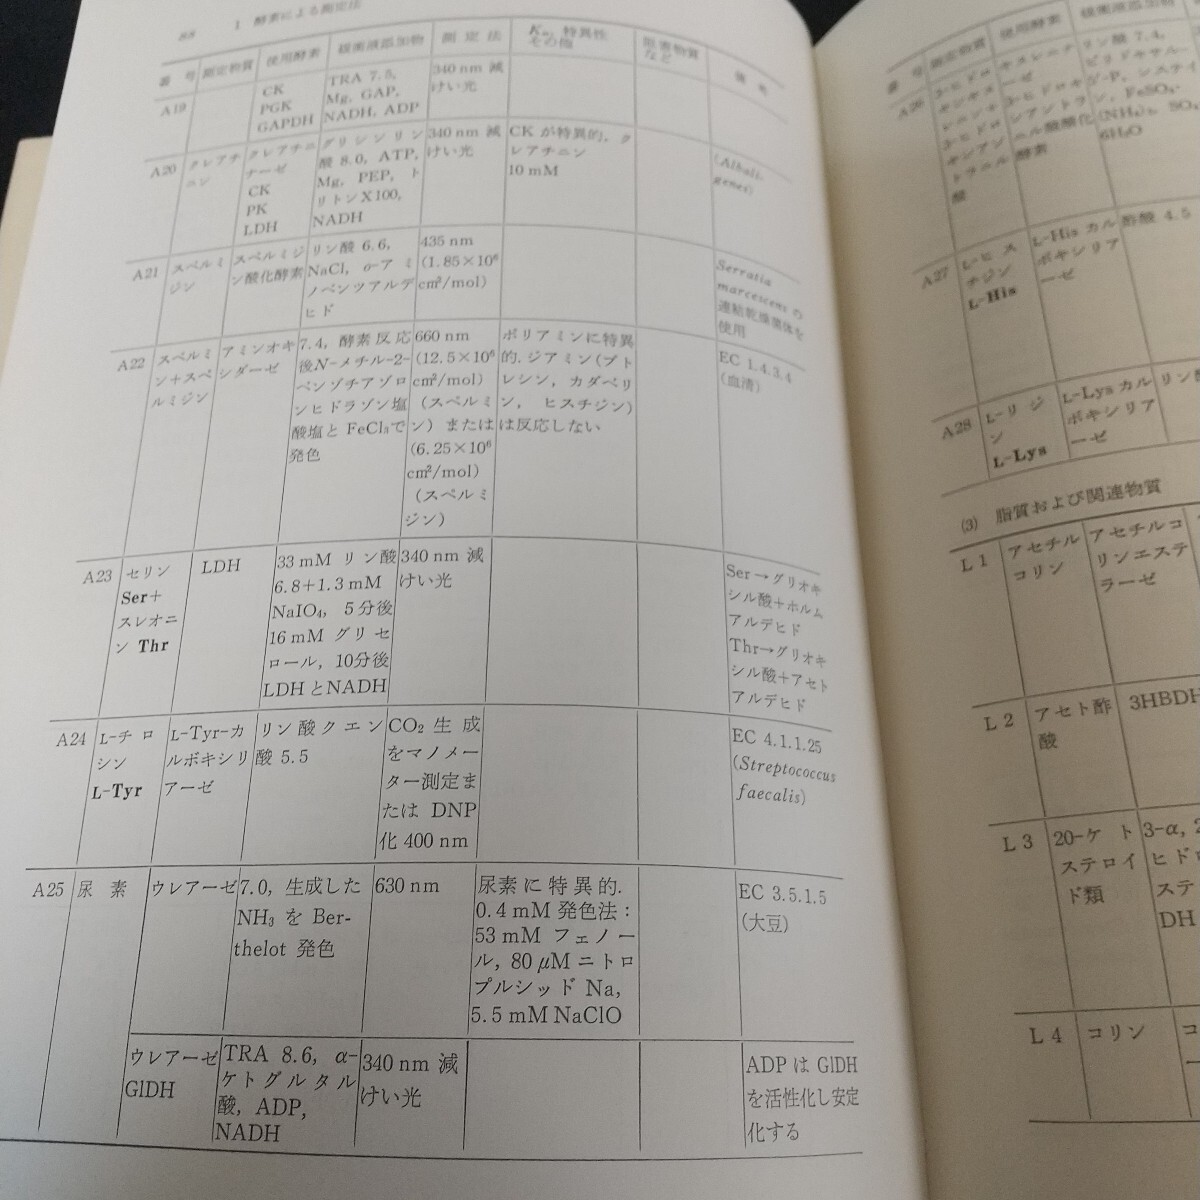 88　1　酵素による測定法
番号　測定物質　使用酵素　緩衝液添加物　測定法　Km, 特異性その他　阻害物質など　備考
A19
CK
PGK
GAPDH
TRA 7.5,
Mg, GAP,
NADH, ADP
340 nm 減
けい光
A20
クレアチ
ニン
クレアチニ
ナーゼ
CK
PK
LDH
グリシンリン
酸 8.0, ATP,
Mg, PEP, ト
リトンX100,
NADH
340 nm 減
けい光
CK が特異的. ク
レアチニン
10 mM
(Alkali-
genes)
A21
スペルミ
ジン
スペルミジ
ン酸化酵素
リン酸 6.6,
NaCl, o-アミ
ノベンツアルデ
ヒド
435 nm
(1.85×10⁶
cm²/mol)
Serratia
marcescens の
凍結乾燥菌体を
使用
A22
スペルミ
ン+スペ
ルミジン
アミンオキ
シダーゼ
7.4, 酵素反応
後N-メチル-2-
ベンゾチアゾロ
ンヒドラゾン塩
酸塩と FeCl₃で
発色
660 nm
(12.5×10⁶
cm²/mol)
(スペルミ
ン) または
(6.25×10⁶
cm²/mol)
(スペルミ
ジン)
ポリアミンに特異
的. ジアミン(プト
レシン, カダベリ
ン, ヒスチジン)
は反応しない
EC 1.4.3.4
(血清)
A23
セリン
Ser+
スレオニ
ン Thr
LDH
33 mM リン酸
6.8+1.3 mM
NaIO₄, 5分後
16 mM グリセ
ロール, 10分後
LDH とNADH
340 nm 減
けい光
Ser→グリオキ
シル酸+ホルム
アルデヒド
Thr→グリオキ
シル酸+アセト
アルデヒド
A24
L-チロ
シン
L-Tyr
L-Tyr-カ
ルボキシリ
アーゼ
リン酸クエン
酸 5.5
CO₂ 生成
をマノメー
ター測定ま
たは DNP
化 400 nm
EC 4.1.1.25
(Streptococcus
faecalis)
A25
尿素
ウレアーゼ
7.0, 生成した
NH₃ を Ber-
thelot 発色
630 nm
尿素に特異的.
0.4 mM 発色法：
53 mM フェノー
ル, 80 μM ニトロ
プルシッド Na,
5.5 mM NaClO
EC 3.5.1.5
(大豆)
ウレアーゼ
GlDH
TRA 8.6, α-
ケトグルタル
酸, ADP,
NADH
340 nm 減
けい光
ADP は GlDH
を活性化し安定
化する
番号　測定物質　使用酵素　緩衝液添加物
A26
3-ヒドロ
キシキヌ
レニン+
3-ヒドロ
キシアン
トラニル
酸
キヌレニナ
ーゼ
3-ヒドロキ
シアントラ
ニル酸酸化
酵素
リン酸 7.4,
ピリドキサル-
5'-P, システイ
ン, FeSO₄·
(NH₄)₂ SO₄
6H₂O
A27
L-ヒス
チジン
L-His
L-His カル
ボキシリア
ーゼ
酢酸 4.5
A28
L-リジ
ン
L-Lys
L-Lys カル
ボキシリア
ーゼ
リン酸
(3) 脂質および関連物質
L1
アセチル
コリン
アセチルコ
リンエステ
ラーゼ
L2
アセト酢
酸
3HBDH
L3
20-ケト
ステロイ
ド類
3-α, 2
ヒドロ
ステ
DH
L4
コリン
コ